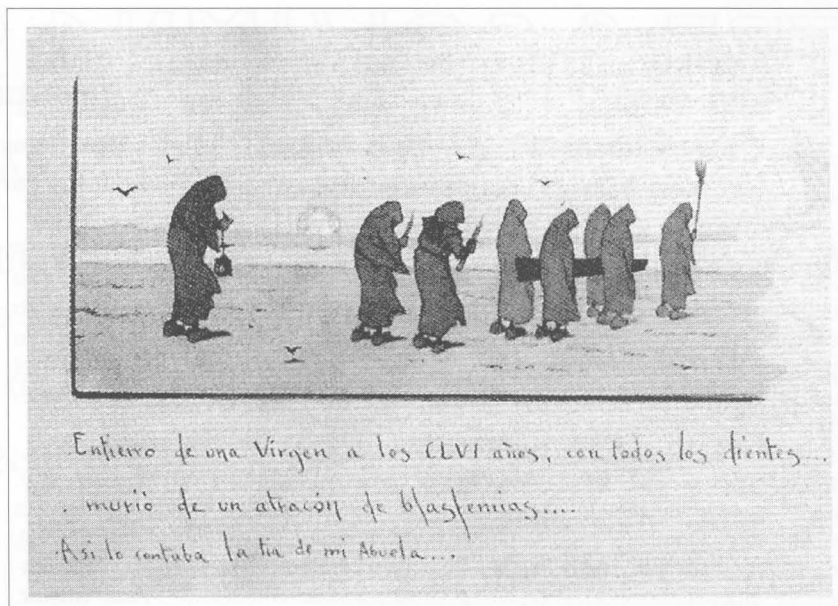 Entierro de una Virgen a los CLVI años, con todos los dientes...
. murió de un atracón de blasfemias....
Asi lo contaba la tia de mi Abuela...